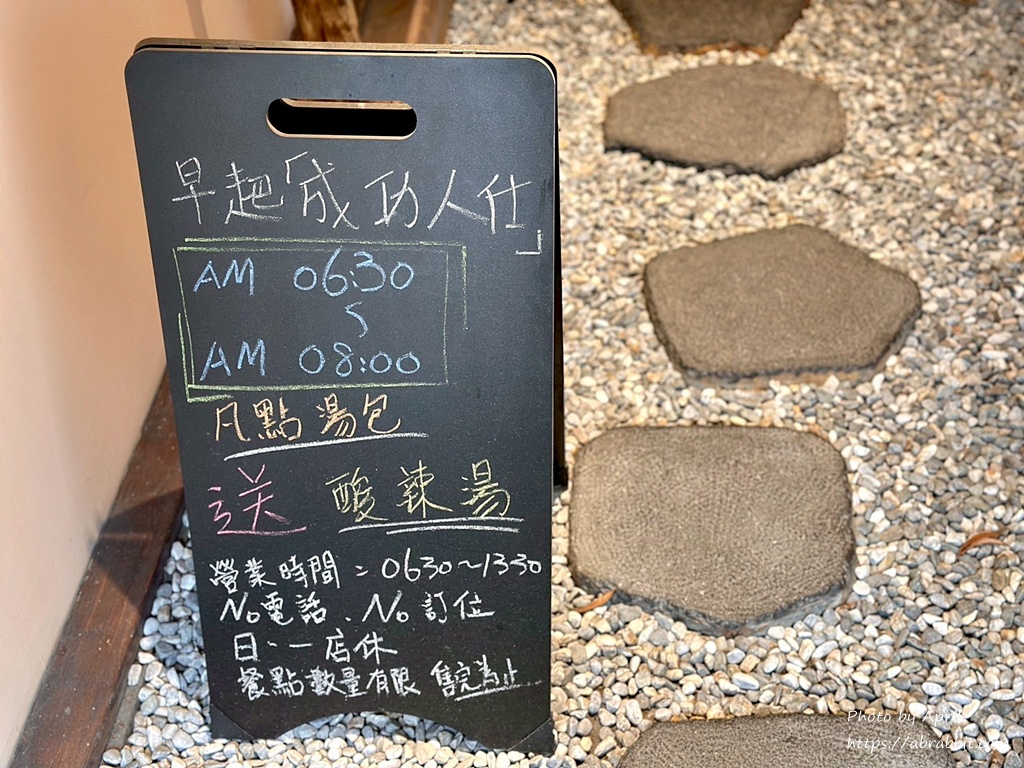 早起「成功人仕」
AM 06:30
~
AM 08:00
凡點湯包
送 酸辣湯
營業時間：0630~1330
No電話、No訂位
日、一店休
餐點數量有限 售完為止
Photo by April